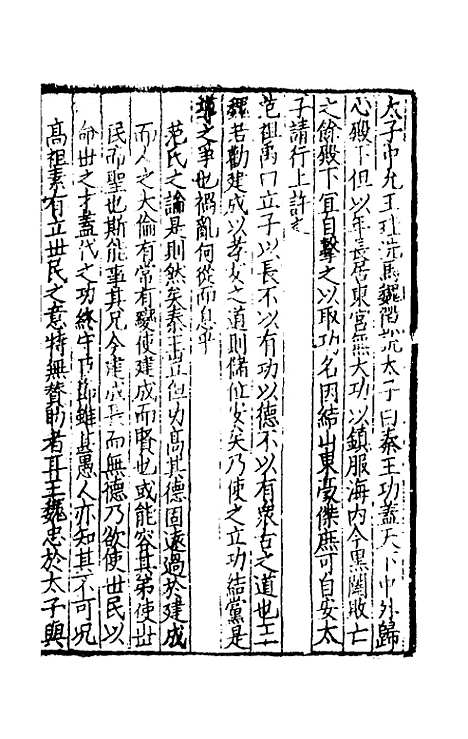 太子中允王珪洗馬魏徵說太子曰秦王功蓋天下中外歸
心殿下但以年長居東宮無大功以鎮服海内今黑闥敗亡
之餘殿下宜自擊之以取功名因結山東豪傑庶可自安太
子請行上許之
范祖禹曰立子以長不以有功以德不以有衆古之道也王
魏若勸建成以孝友之道則儲位安矣乃使之立功結黨是
導之爭也禍亂何從而息乎
范氏之論是則然矣秦王豈但功高其德固遠過於建成
而人之大倫有常有變使建成而賢也或能容其弟使世
民而聖也斯能事其兄今建成長而無德乃欲使世民以
命世之才蓋代之功終守臣節雖甚愚人亦知其不可況
高祖素有立世民之意特無贊助者耳王魏忠於太子與